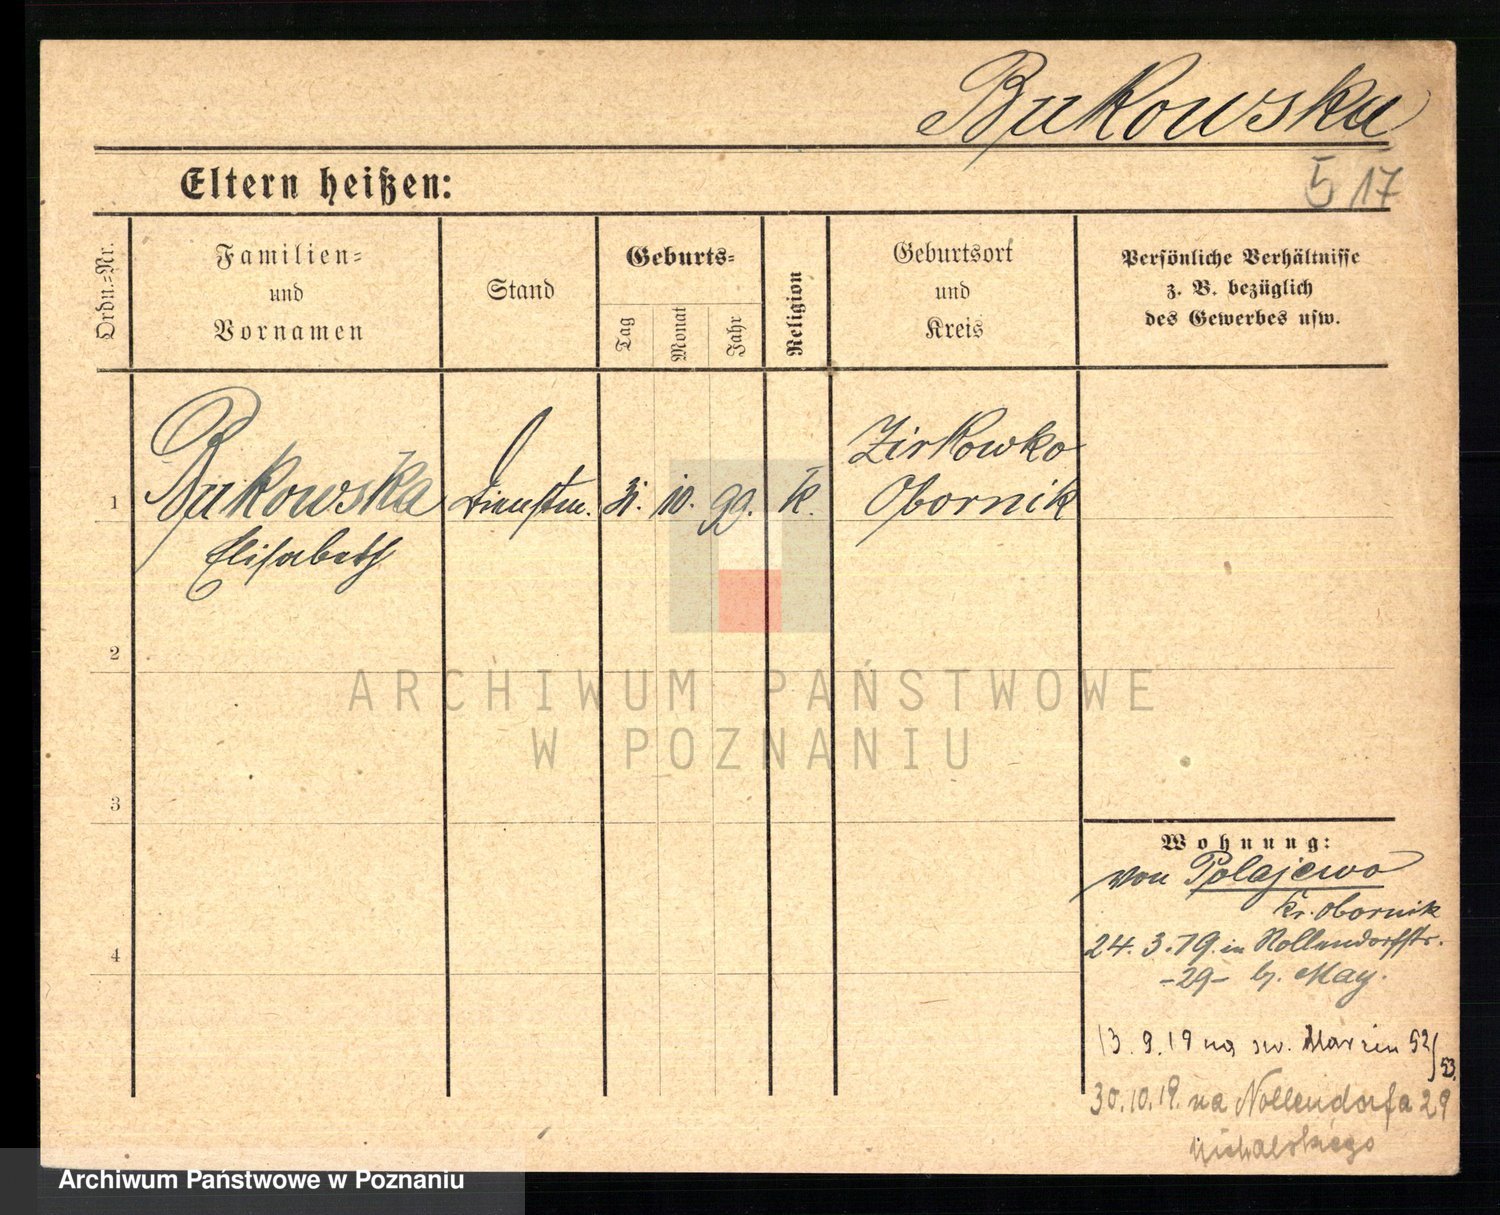 Bukowska
5 17
Eltern heißen:
Ordn.-Nr.
Familien-
und
Vornamen
Stand
Geburts-
Tag
Monat
Jahr
Religion
Geburtsort
und
Kreis
Persönliche Verhältnisse
z. B. bezüglich
des Gewerbes usw.
1
Bukowska
Elisabeth
Dienstm.
31. 10. 99.
K.
Zirkowko
Obornik
2
3
4
ARCHIWUM PAŃSTWOWE
W POZNANIU
Wohnung:
von Polajewo
Kr. Obornik
24. 3. 19. in Nollendorfstr.
-29- b. May.
13. 9. 19 na sw. Marcin 52/53.
30. 10. 19. na Nollendorfa 29
Archiwum Państwowe w Poznaniu